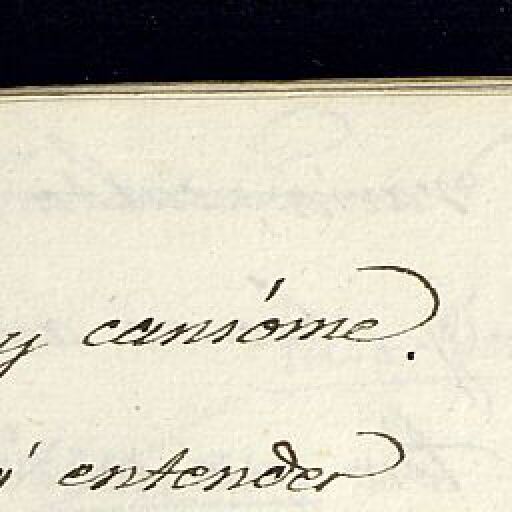 y cansóme.
entender